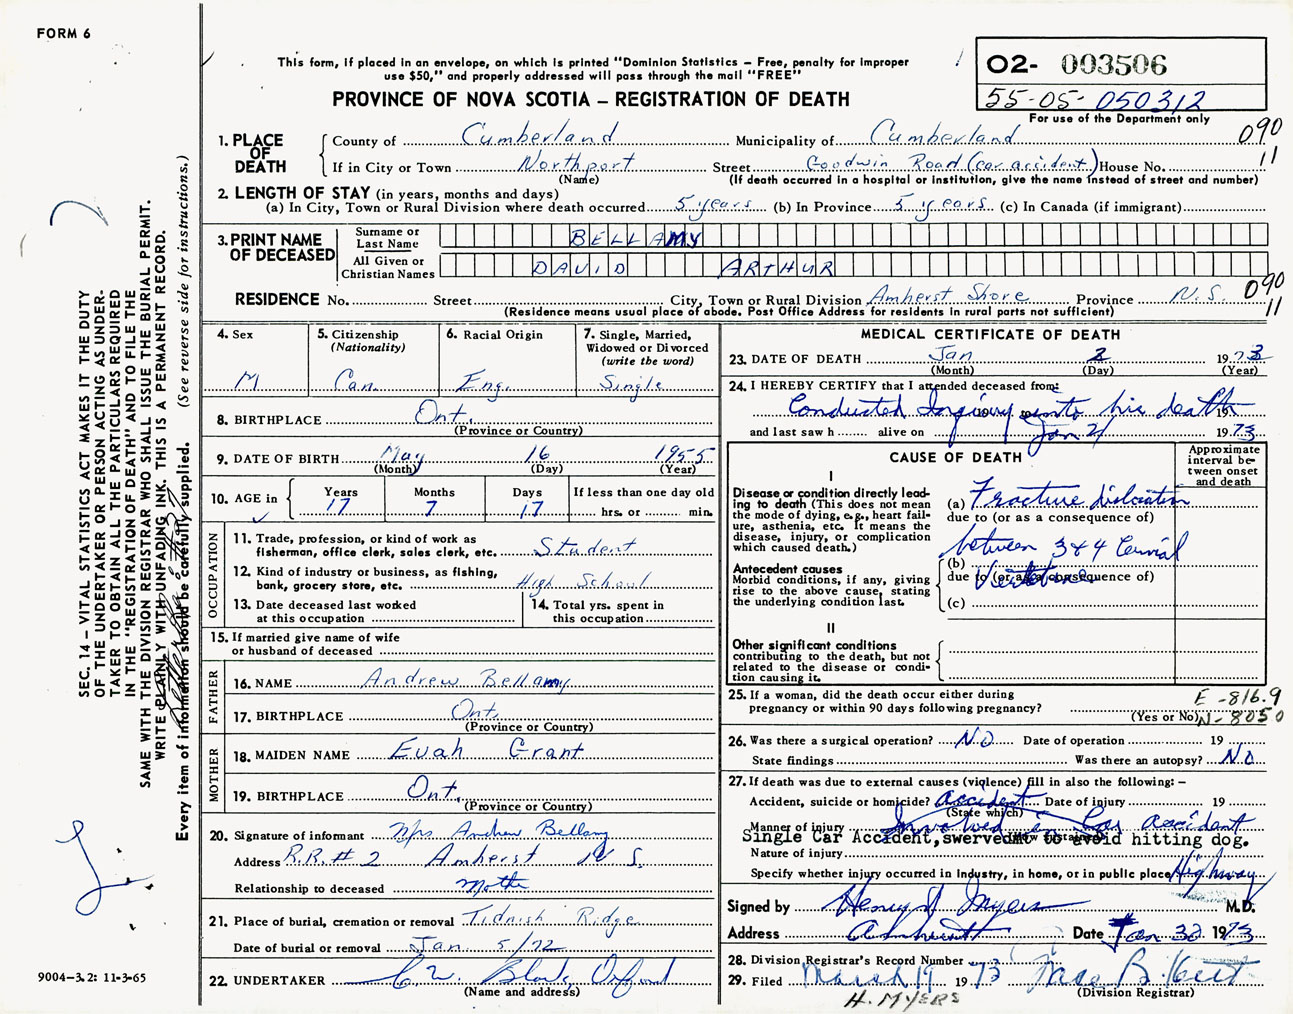 FORM 6
This form, if placed in an envelope, on which is printed "Dominion Statistics – Free, penalty for improper
use $50," and properly addressed will pass through the mail "FREE"
PROVINCE OF NOVA SCOTIA – REGISTRATION OF DEATH
02- 003506
55-05- 050312
For use of the Department only
090
11
1. PLACE OF DEATH
County of Cumberland Municipality of Cumberland
If in City or Town Northport Street Goodwin Road (car accident) House No.
(Name) (If death occurred in a hospital or institution, give the name instead of street and number)
2. LENGTH OF STAY (in years, months and days)
(a) In City, Town or Rural Division where death occurred 5 years (b) In Province 5 years (c) In Canada (if immigrant)
3. PRINT NAME OF DECEASED
Surname or Last Name BELLAMY
All Given or Christian Names DAVID ARTHUR
RESIDENCE No. Street City, Town or Rural Division Amherst Shore Province N.S. 090
11
(Residence means usual place of abode. Post Office Address for residents in rural parts not sufficient)
4. Sex
M
5. Citizenship
(Nationality)
Can.
6. Racial Origin
Eng.
7. Single, Married,
Widowed or Divorced
(write the word)
Single
8. BIRTHPLACE Ont.
(Province or Country)
9. DATE OF BIRTH May 16 1955
(Month) (Day) (Year)
10. AGE in Years Months Days If less than one day old
17 7 17 hrs. or min.
OCCUPATION
11. Trade, profession, or kind of work as
fisherman, office clerk, sales clerk, etc. Student
12. Kind of industry or business, as fishing,
bank, grocery store, etc. High School
13. Date deceased last worked
at this occupation
14. Total yrs. spent in
this occupation
15. If married give name of wife
or husband of deceased
FATHER
16. NAME Andrew Bellamy
17. BIRTHPLACE Ont.
(Province or Country)
MOTHER
18. MAIDEN NAME Evah Grant
19. BIRTHPLACE Ont.
(Province or Country)
20. Signature of informant Mrs Andrew Bellamy
Address R.R. # 2 Amherst N S.
Relationship to deceased Mother
21. Place of burial, cremation or removal Tidnish Ridge
Date of burial or removal Jan 5/72
22. UNDERTAKER Oxford
(Name and address)
MEDICAL CERTIFICATE OF DEATH
23. DATE OF DEATH Jan 2 1973
(Month) (Day) (Year)
24. I HEREBY CERTIFY that I attended deceased from:
Conducted Inquiry into his death 19
and last saw h alive on Jan 2/ 1973
CAUSE OF DEATH
Approximate
interval be-
tween onset
and death
I
Disease or condition directly lead-
ing to death (This does not mean
the mode of dying, e.g., heart fail-
ure, asthenia, etc. It means the
disease, injury, or complication
which caused death.)
(a) Fracture dislocation
due to (or as a consequence of)
between 3 & 4 Cervical
(b) Vertebrae
due to (or as a consequence of)
(c)
Antecedent causes
Morbid conditions, if any, giving
rise to the above cause, stating
the underlying condition last.
II
Other significant conditions
contributing to the death, but not
related to the disease or condi-
tion causing it.
25. If a woman, did the death occur either during
pregnancy or within 90 days following pregnancy?
(Yes or No)
E -816.9
N- 8050
26. Was there a surgical operation? No Date of operation 19
State findings Was there an autopsy? No
27. If death was due to external causes (violence) fill in also the following: –
Accident, suicide or homicide? Accident Date of injury 19
(State which)
Manner of injury Involved in Car accident
(How sustained)
Single Car Accident, swerved to avoid hitting dog.
Nature of injury
Specify whether injury occurred in Industry, in home, or in public place Highway
Signed by Henry Myers M.D.
Address Amherst Date Jan 1973
28. Division Registrar's Record Number
29. Filed March 19 1973
(Division Registrar)
H. MYERS
SEC. 14 – VITAL STATISTICS ACT MAKES IT THE DUTY
OF THE UNDERTAKER OR PERSON ACTING AS UNDER-
TAKER TO OBTAIN ALL THE PARTICULARS REQUIRED
IN THE "REGISTRATION OF DEATH" AND TO FILE THE
SAME WITH THE DIVISION REGISTRAR WHO SHALL ISSUE THE BURIAL PERMIT.
WRITE PLAINLY WITH UNFADING INK. THIS IS A PERMANENT RECORD.
Every item of information should be carefully supplied. (See reverse side for instructions.)
9004-3.2: 11-3-65